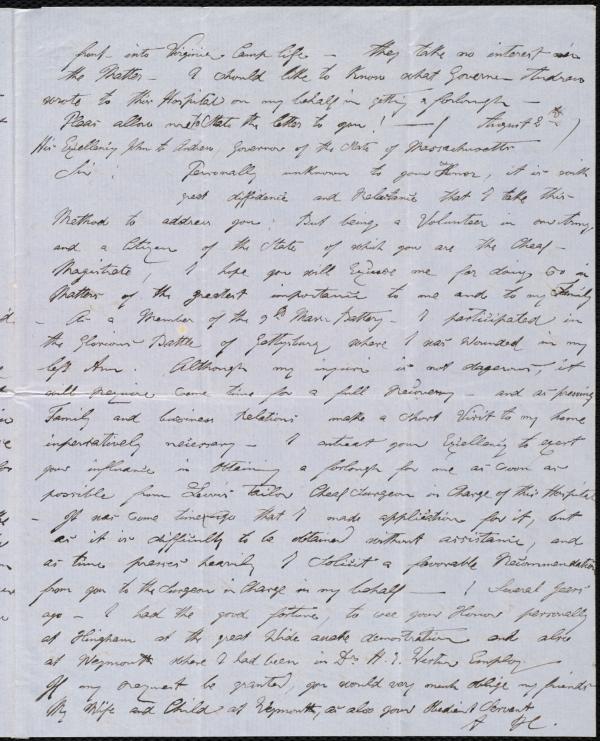 front - into Virginia Camp life - they take no interest in
the Matter - I should like to Know what Governer Andrew
wrote to this Hospital on my behalf in getting a forlough -
Pleas allow me to State the letter to you! - ( August 2d )
His Excellency John A Andrew, Governor of the State of Massachusetts
Sir! Personally unknown to your Honor, it is with
great diffidence and Reluctance that I take this
Method to address you; But being a Volunteer in our Army,
and a Citizen of the State of which you are the Cheaf -
Magistrate, I hope you will Excuse me for doing so in
Matters of the greatest importance to me and to my Family
- As a Member of the 9th Mass Battery - I participated in
the Glorious Battle of Gettysburg where I was Wounded in my
left Arm. Although my injurie is not dagerous, it
will require some time for a full Recovery - and as pressing
Family and business Relations make a short Visit to my home
imperatively necessary - I entreat your Excellency to exert
your influance in Obtaining a forlough for me as soon as
possible from Lewis Tailor Cheaf Surgeon in Charge of this Hospital
- It was some time ago that I made application for it, but
as it is difficulty to be obtained without assistance, and
as time presses heavily I Solicit a favorable Recommendation
from you to the Surgeon in Charge in my behalf - ! Several years
ago - I had the good fortune, to see your Honour personally
at Hingham at the great Wide awake demonstration and also
at Weymouth where I had been in Dr. Employ.
If my request be granted, you would very much oblige my friends
My Wife and Child at Weymouth, as also your Obedient Servant